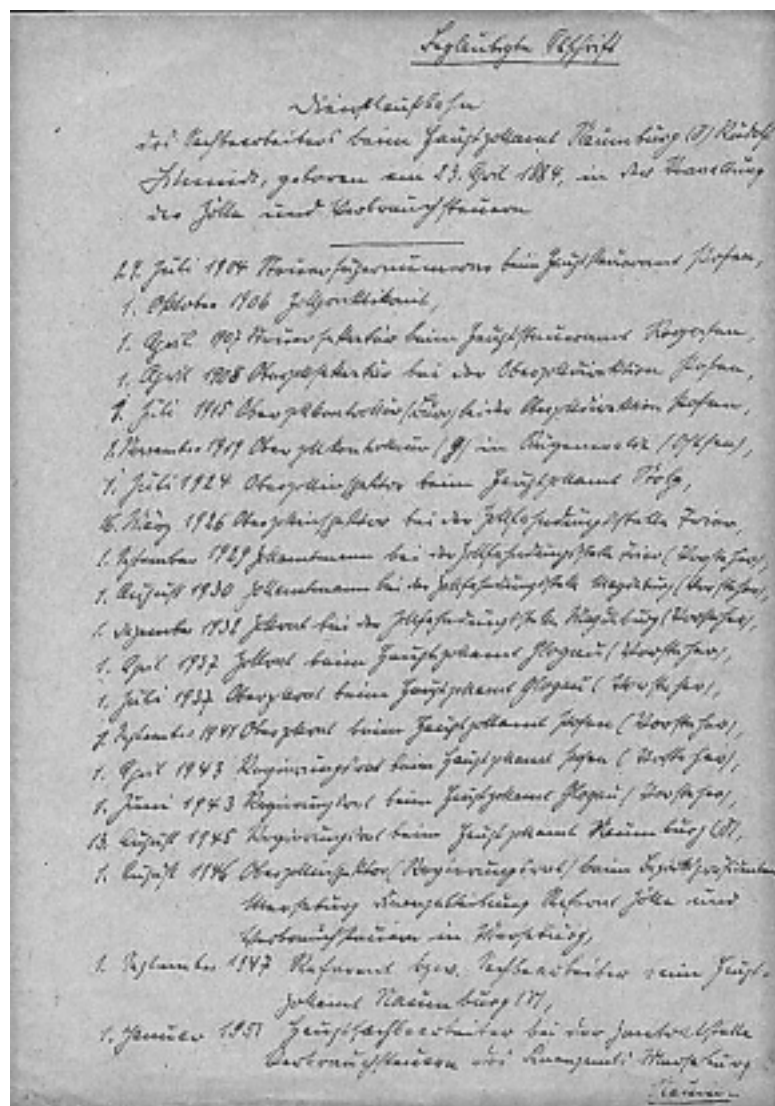 Beglaubigte Abschrift
Dienstlaufbahn
des Sachbearbeiters beim Hauptzollamt Naumburg (S) Rudolf
Schmidt, geboren am 23. April 1884, in der Verwaltung
der Zölle und Verbrauchsteuern
29. Juli 1904 Steuersupernumerar beim Hauptsteueramt Posen,
1. Oktober 1906 Zollpraktikant,
1. April 1907 Steuersekretär beim Hauptsteueramt Rogasen,
1. April 1908 Oberzollsekretär bei der Oberzolldirektion Posen,
1. Juli 1915 Oberzollkontrolleur (Büro) bei der Oberzolldirektion Posen,
1. November 1919 Oberzollkontrolleur (G) in Rügenwalde (Ostsee),
1. Juli 1924 Oberzollinspektor beim Hauptzollamt Stolp,
16. März 1926 Oberzollinspektor bei der Zollfahndungsstelle Trier,
1. September 1929 Zollamtmann bei der Zollfahndungsstelle Trier (Vorsteher),
1. August 1930 Zollamtmann bei der Zollfahndungsstelle Magdeburg (Vorsteher),
1. Dezember 1932 Zollrat bei der Zollfahndungsstelle Magdeburg (Vorsteher),
1. April 1937 Zollrat beim Hauptzollamt Glogau (Vorsteher),
1. Juli 1937 Oberzollrat beim Hauptzollamt Glogau (Vorsteher),
September 1941 Oberzollrat beim Hauptzollamt Posen (Vorsteher),
1. April 1943 Regierungsrat beim Hauptzollamt Posen (Vorsteher),
1. Juni 1943 Regierungsrat beim Hauptzollamt Glogau (Vorsteher),
13. August 1945 Regierungsrat beim Hauptzollamt Naumburg (S),
1. August 1946 Oberzollinspektor (Regierungsrat) beim Bezirkspräsidenten
Merseburg Finanzabteilung Referat Zölle und
Verbrauchsteuern in Merseburg,
1. September 1947 Referent bzw. Sachbearbeiter beim Haupt-
zollamt Naumburg (S),
1. Januar 1951 Hauptsachbearbeiter bei der Zweigstelle
Verbrauchsteuern des Finanzamts Merseburg